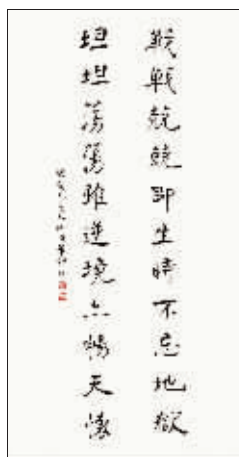 戰戰兢兢即生時不忘地獄
坦坦蕩蕩雖逆境亦暢天懷